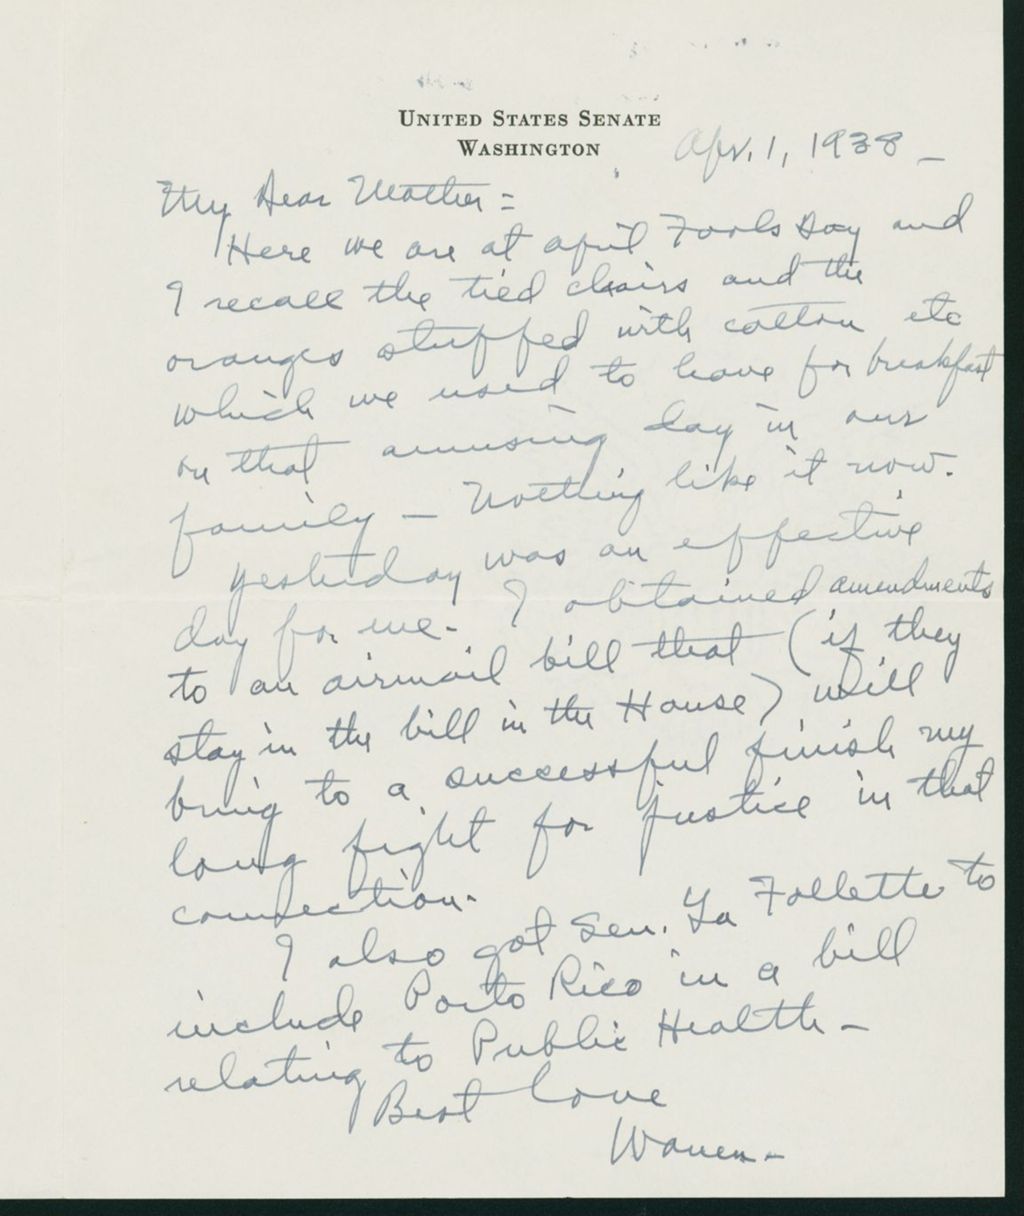 UNITED STATES SENATE
WASHINGTON
Apr. 1, 1938 –
My Dear Mother =
Here we are at april Fools Day and
I recall the tied chairs and the
oranges stuffed with cotton etc
which we used to have for breakfast
on that amusing day in our
family – Nothing like it now.
Yesterday was an effective
day for me. I obtained amendments
to an airmail bill that (if they
stay in the bill in the House) will
bring to a successful finish my
long fight for justice in that
connection.
I also got Sen. La Follette to
include Porto Rico in a bill
relating to Public Health –
Best love
Warren –